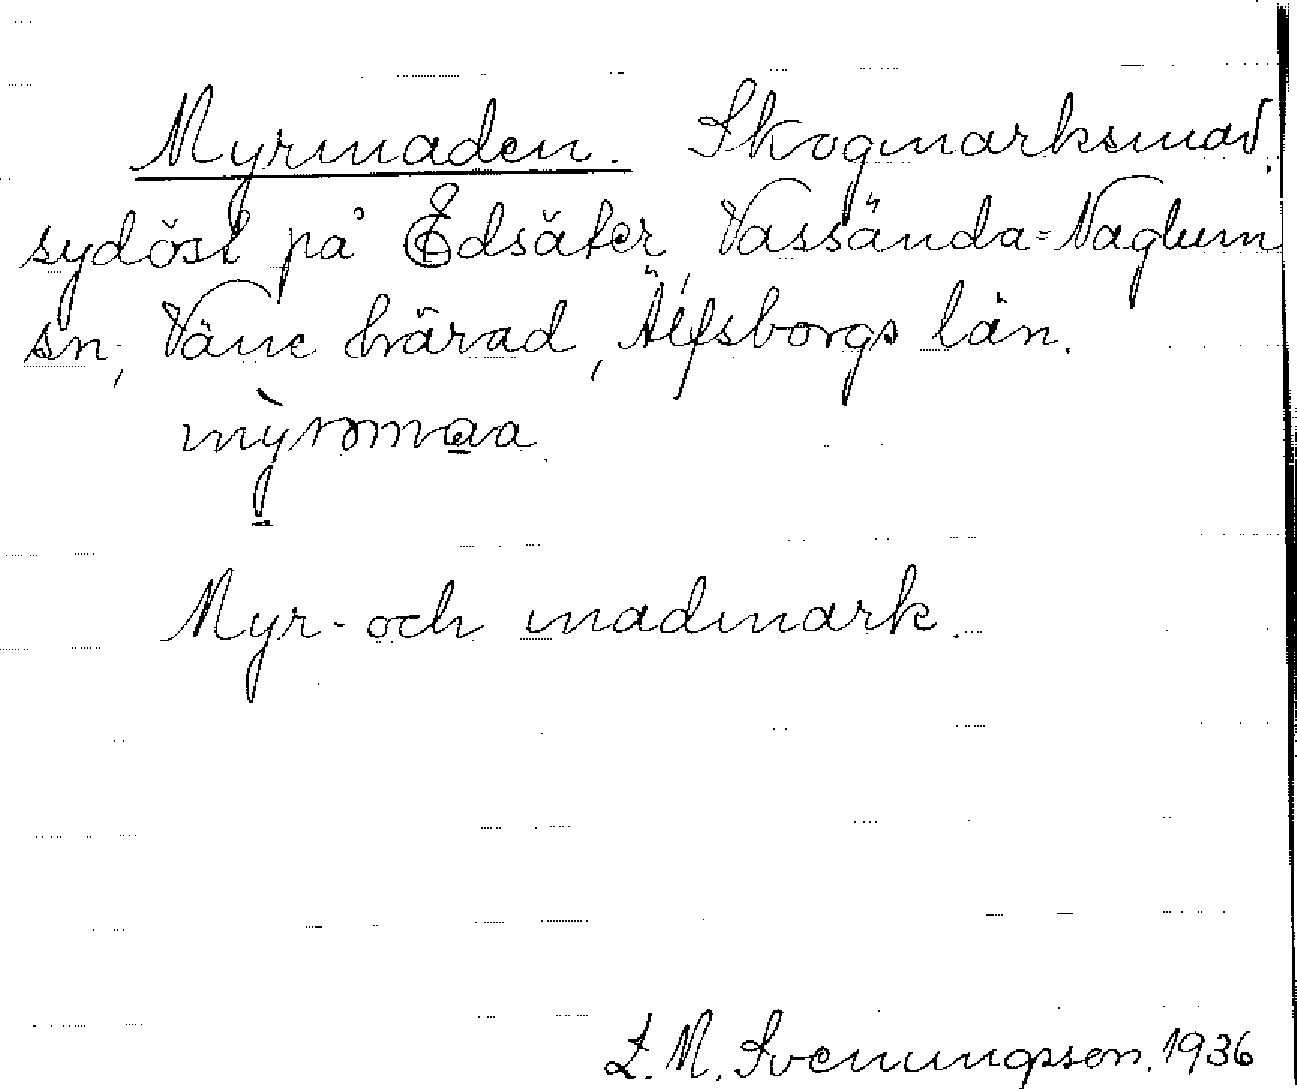 Myrmaden. Skogmarksmad
sydöst på Edsäter Vassända=Naglum
sn, Väne härad, Älfsborgs län.
Myr- och madmark.
L. M. Svenungsson. 1936